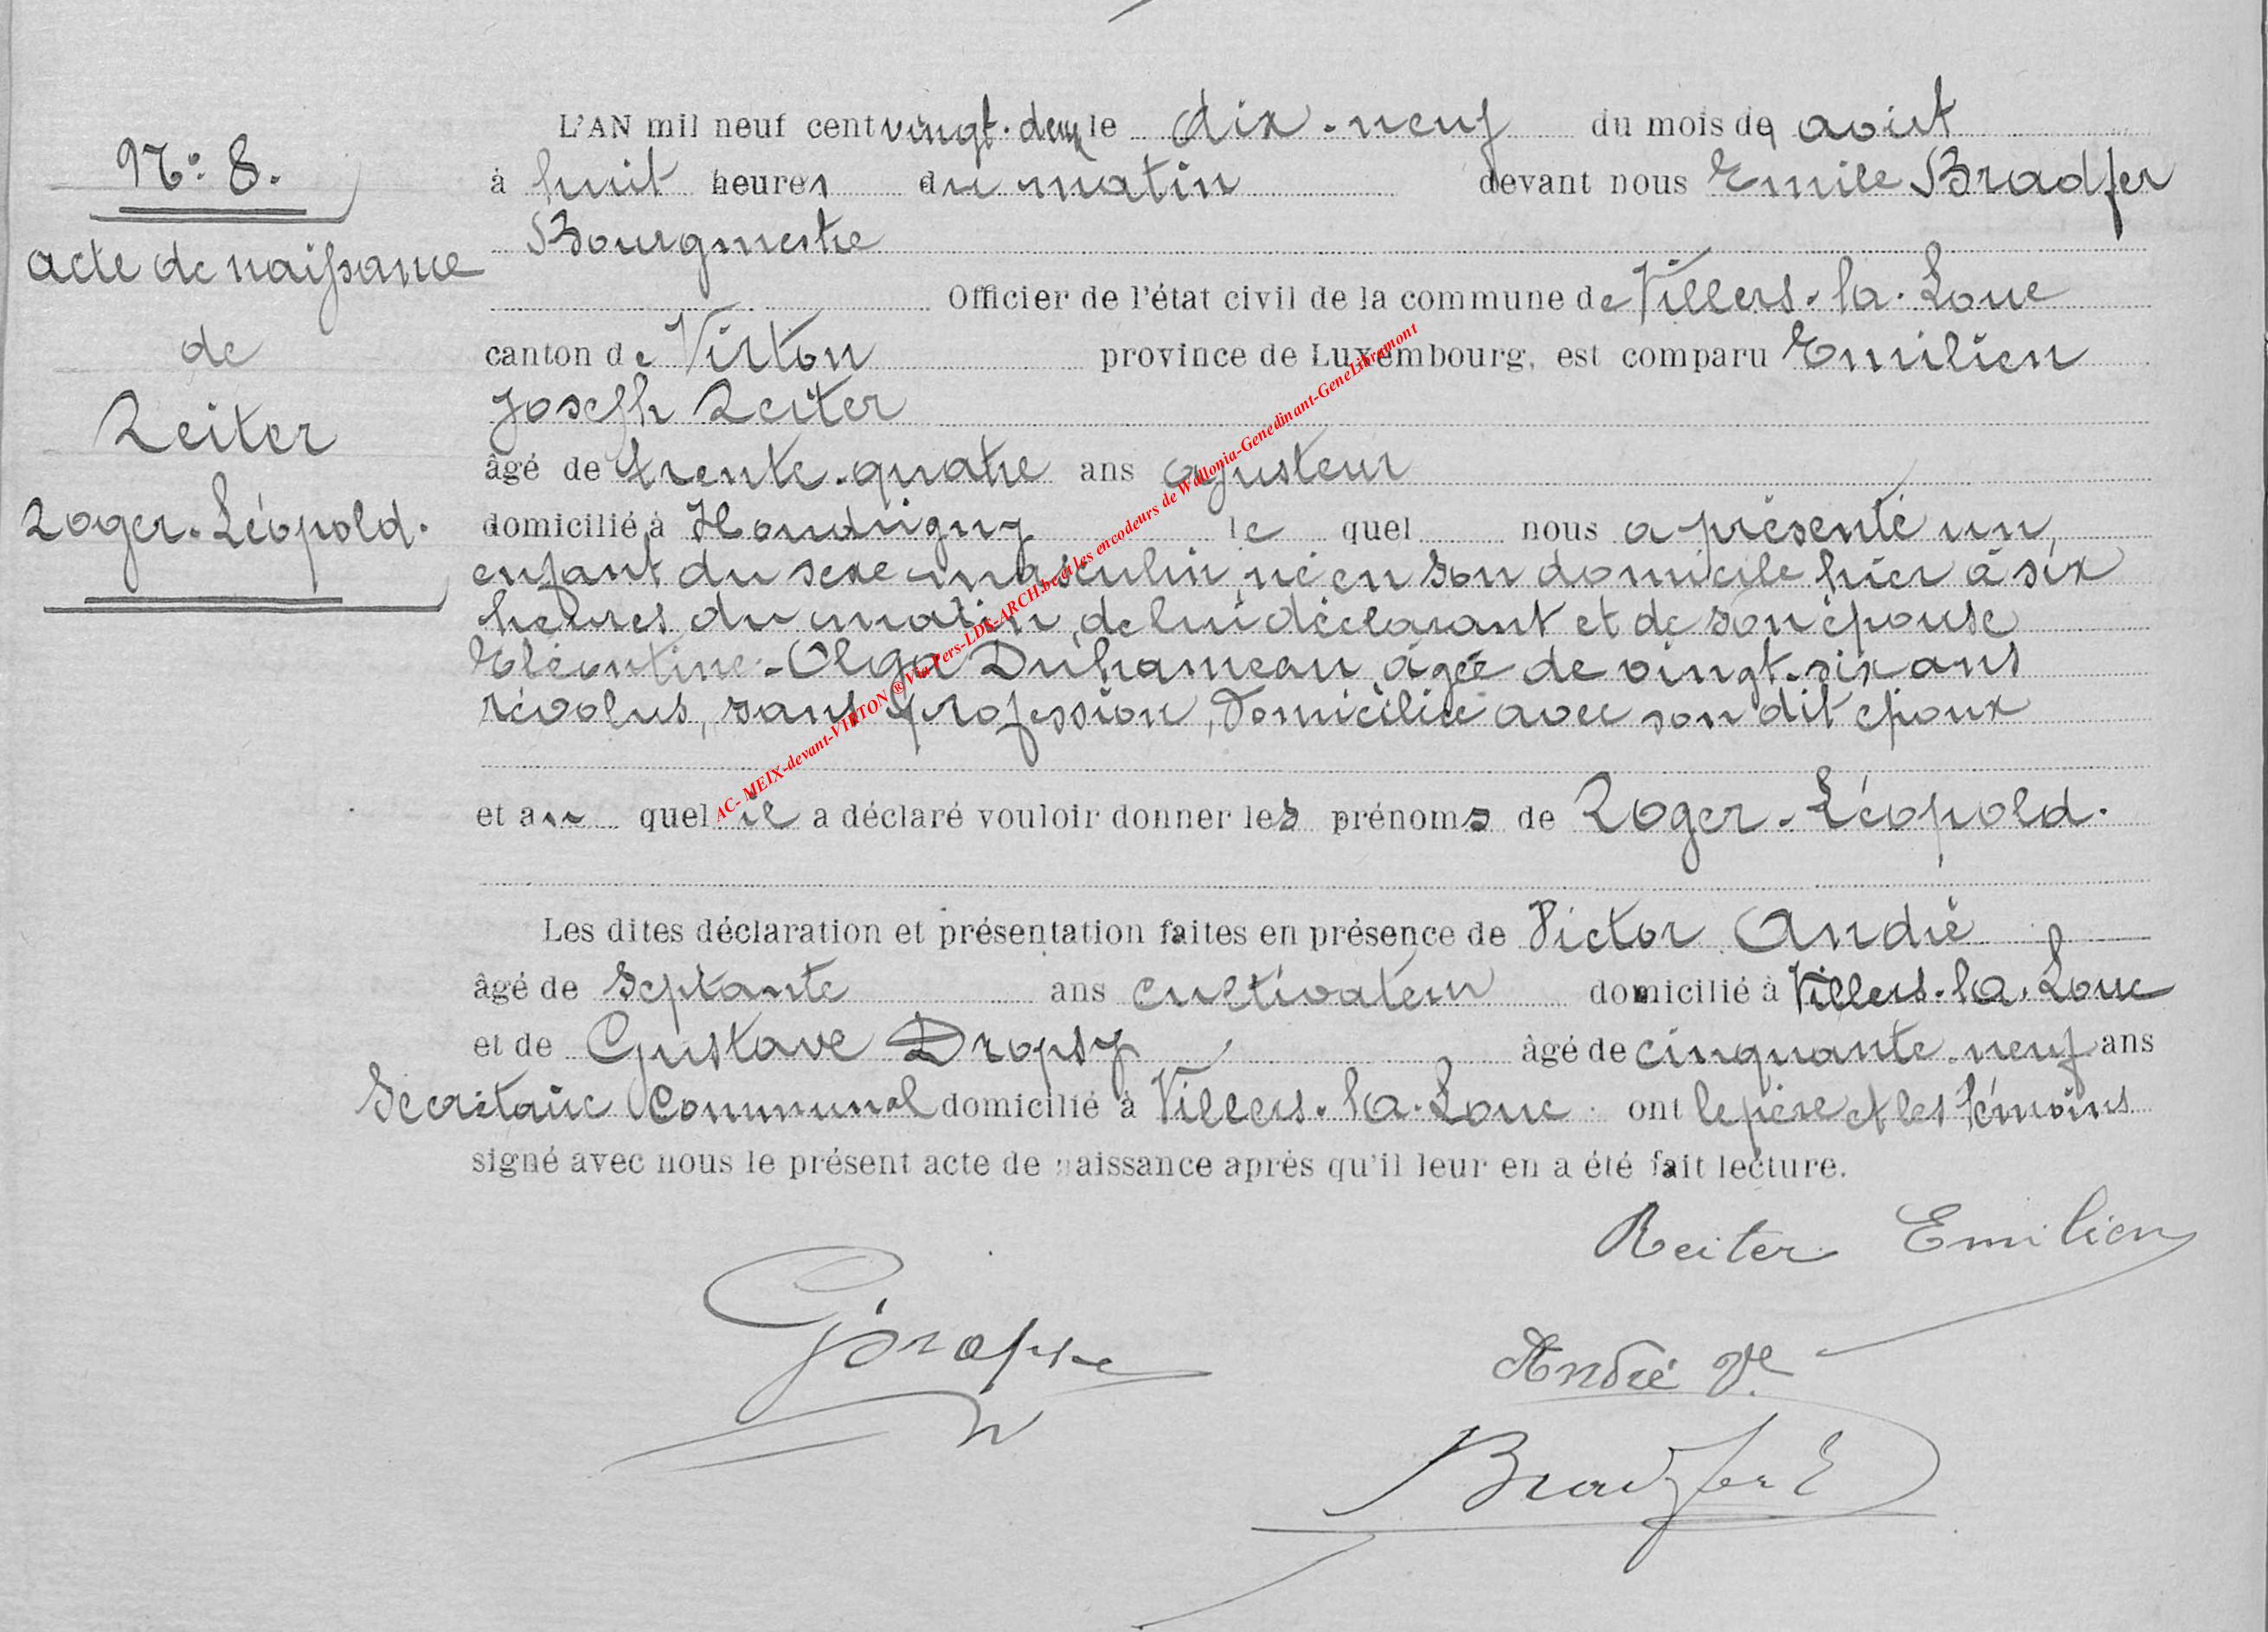 L'AN mil neuf cent vingt-deux le dix-neuf du mois de août
à huit heures du matin devant nous Emile Bradfer
Bourgmestre
Officier de l'état civil de la commune de Villers-la-Loue
canton de Virton province de Luxembourg, est comparu Emilien
Joseph Reiter
âgé de trente-quatre ans ajusteur
domicilié à Houdrigny le quel nous a présenté un
enfant du sexe masculin, né en son domicile hier à six
heures du matin, de lui déclarant et de son épouse
Eléontine-Olga Duhameau âgée de vingt-six ans
révolus, sans profession, domiciliée avec son dit époux
et au quel il a déclaré vouloir donner les prénoms de Roger-Léopold.
Les dites déclaration et présentation faites en présence de Victor André
âgé de septante ans cultivateur domicilié à Villers-la-Loue
et de Gustave Dropsy âgé de cinquante-neuf ans
Secrétaire Communal domicilié à Villers-la-Loue ont le père et les témoins
signé avec nous le présent acte de naissance après qu'il leur en a été fait lecture.
N° 8.
acte de naissance
de
Reiter
Roger-Léopold.
Reiter Emilien
André Vr
Bradfer E
AC- MEIX-devant-VIRTON ® Via Pers-LDS-ARCH.be et les encodeurs de Wallonia-Genedinant-GeneLibramont